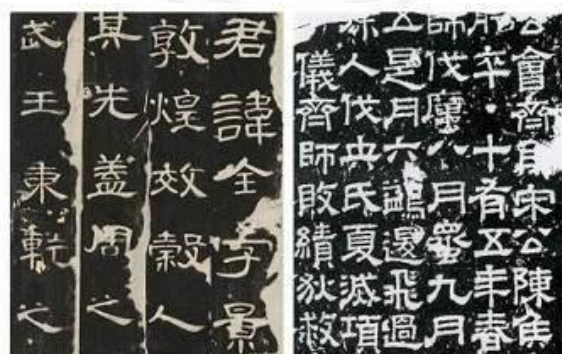 君諱全字景
敦煌效穀人
其先蓋周之
武王秉乾之
公會齊侯宋公陳侯
卒·十有五年春
師伐厲八月螽九月
五是月六鷁退飛過
徐人伐英氏夏滅項
儀齊師敗績狄救